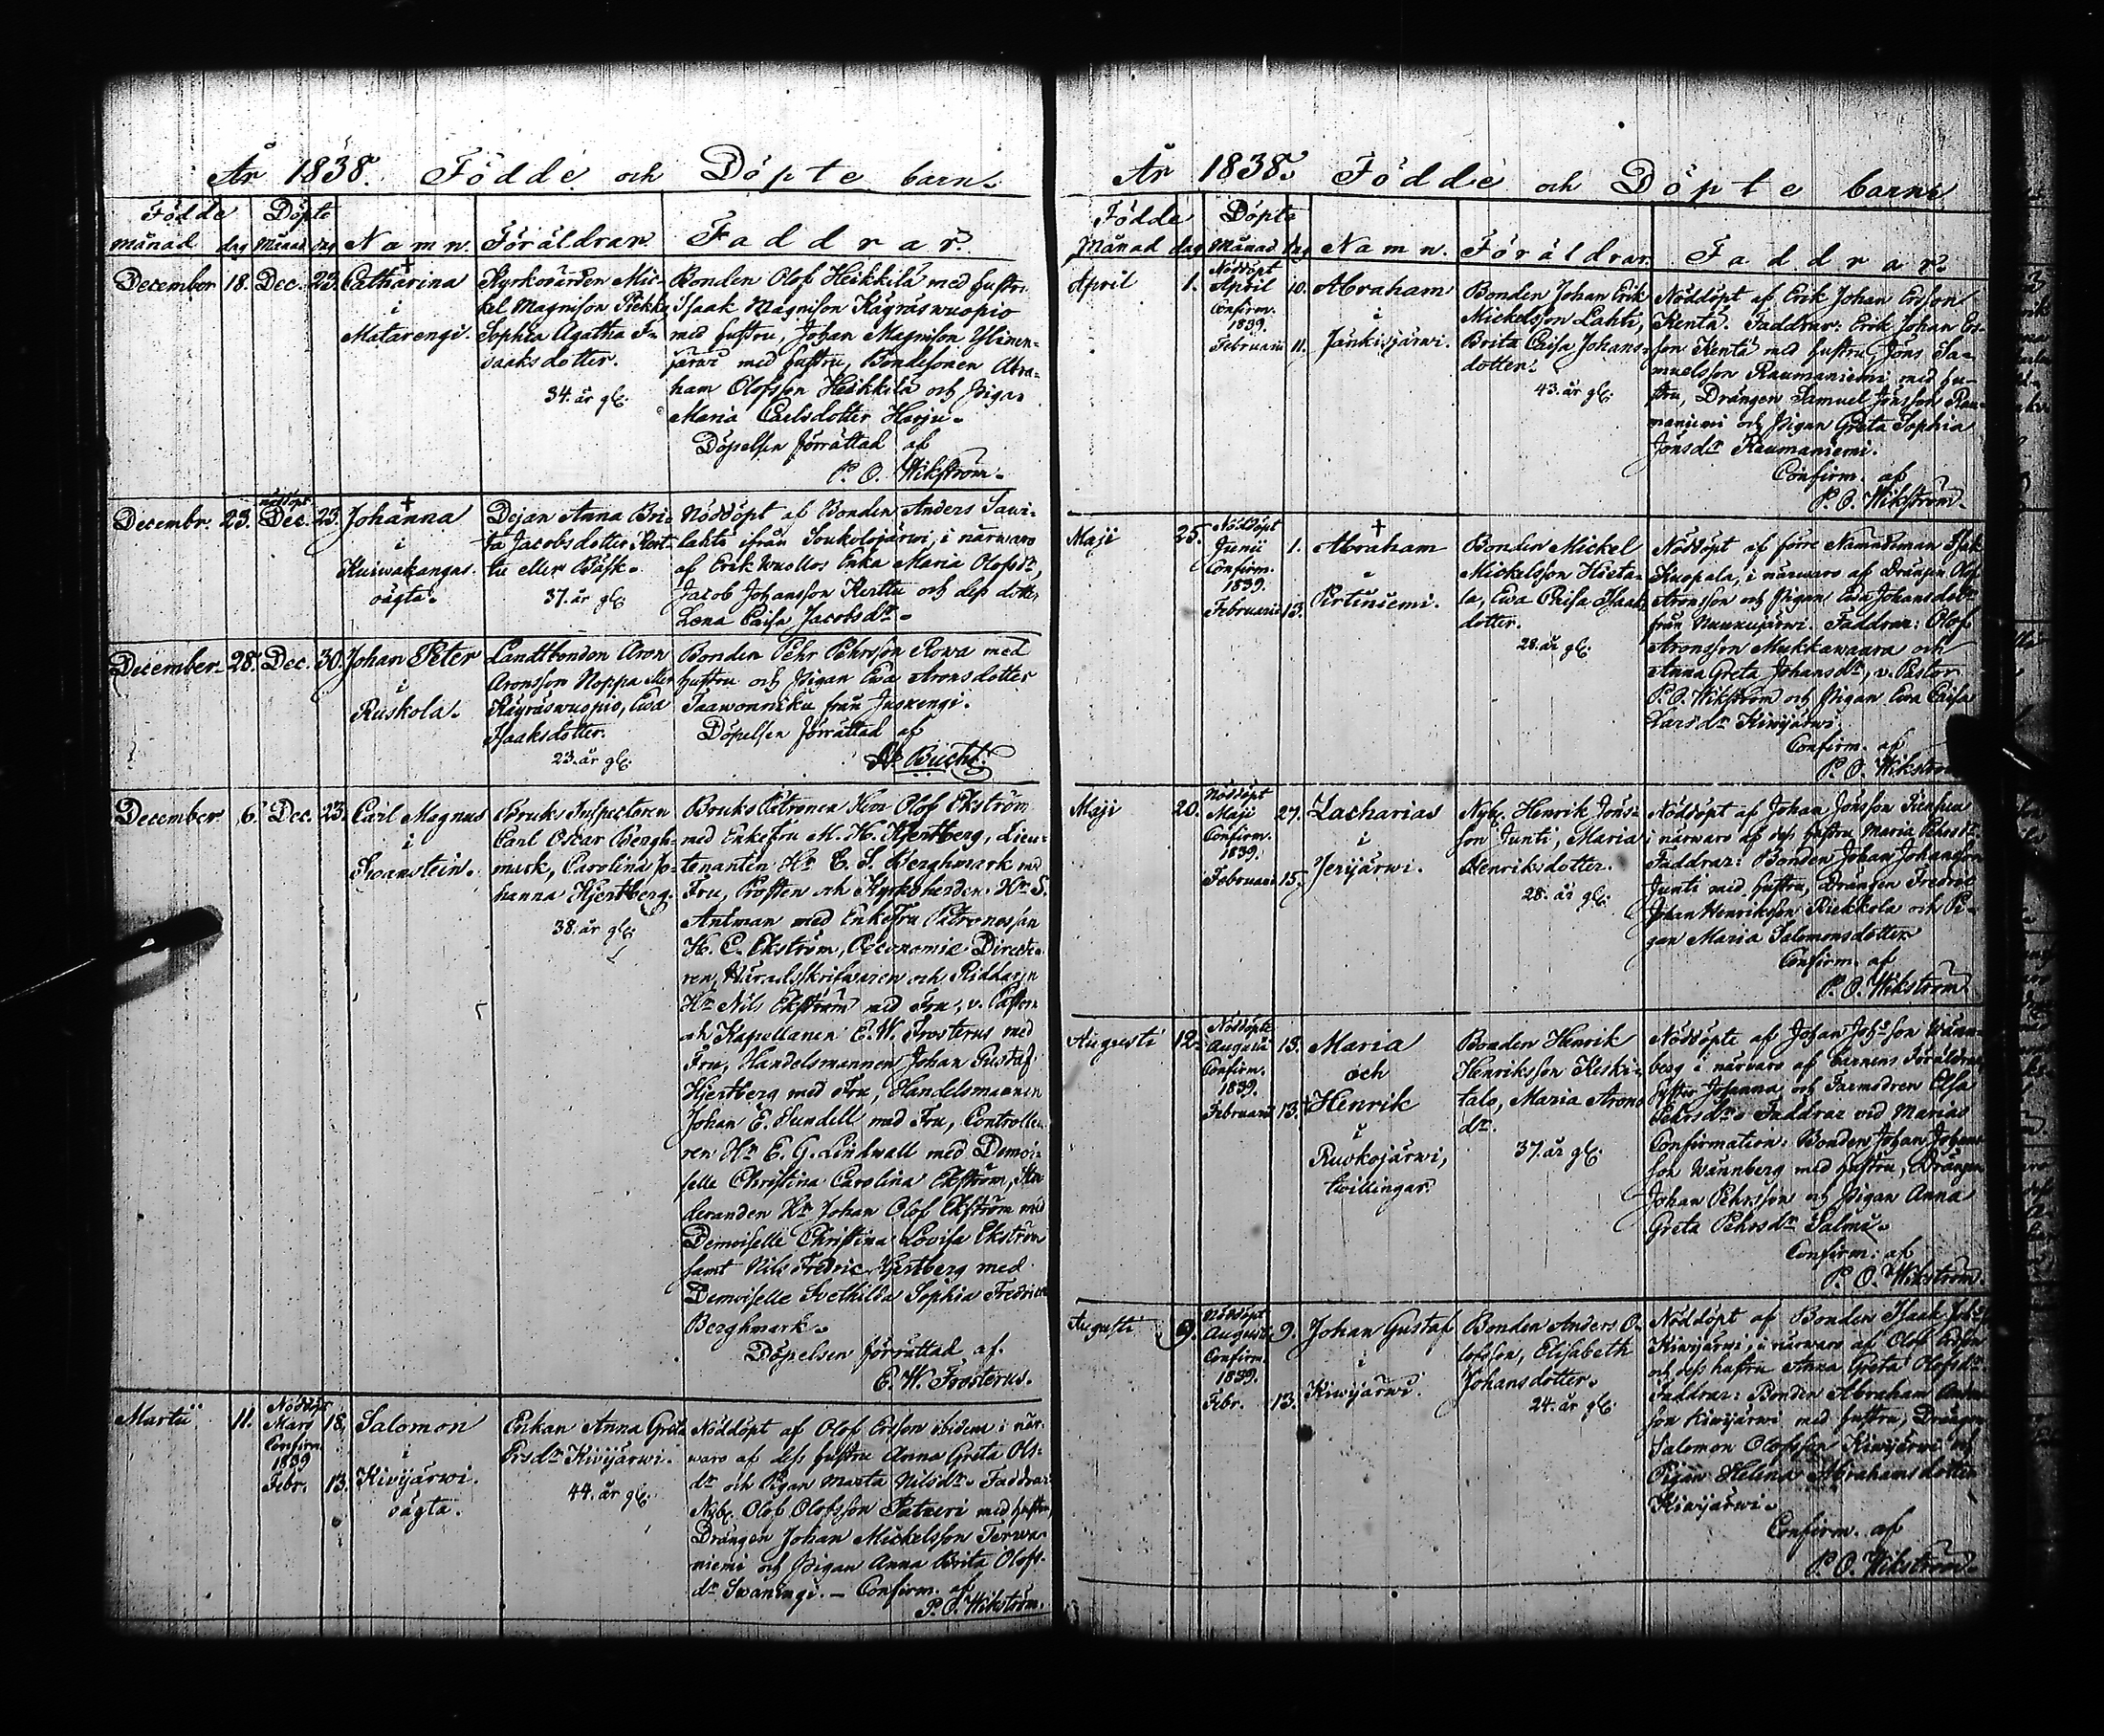 År 1838. Födde och Döpte barn.
Födde Döpte
månad dag Månad dag Namn. Föräldrar. Faddrar.
December 18. Dec. 23. Catharina
i
Matarengi.
Kyrkovärden Mic-
kel Magnisson Piekko
Sophia Agatha I-
saaksdotter.
34. år gl.
Bonden Olof Heikkilä med hustru
Isaak Magnisson Kägräswuopio
med hustru, Johan Magnisson Ylinen-
järwi med hustru, Bondesonen Abra-
ham Olofsson Heikkilä och Pigan
Maria Carlsdotter Harju.
Döpelsen förrättad af
P. O. Wikström.
Decembr. 23. nödöpt Dec. 23. Johanna
i
Kuiwakangas.
oägta.
Dejan Anna Bri-
ta Jacobsdotter Kert-
tu eller Bäsk.
37. år gl.
Nöddöpt af Bonden Anders Sawi-
lahti ifrån Soukolojärwi, i närwaro
af Erik Wuollos Enka Maria Olofsdr,
Jacob Johansson Kerttu och dess dotter
Lena Caisa Jacobsdr.
December 28. Dec. 30. Johan Peter
i
Ruskola.
Landtbonden Aron
Aronsson Noppa eller
Kägräswuopio, Ewa
Isaaksdotter.
23. år gl.
Bonden Pehr Pehrsson Rowa med
hustru och Pigan Ewa Aronsdotter
Taawonniku från Juoxengi.
Döpelsen förrättad af
Bucht.
December 6. Dec. 23. Carl Magnus
i
Svanstein.
Bruks Inspectoren
Carl Oscar Bergh-
mark, Carolina Jo-
hanna Hjertberg.
38. år gl.
Bruks Patronen Herr Olof Ekström
med EnkeFru M. H. Hjertberg, Lieu-
tenanten Hr C. S. Berghmark med
Fru, Prosten och Kyrkoherden Hr S.
Antman med EnkeFru Patronessan
H. C. Ekström, Oeconomie Directeu-
ren, Häradsskrifwaren och Riddaren
Hr Nils Ekström med Fru, v. Pastor
och Kapellanen E. W. Frosterus med
Fru, Handelsmannen Johan Gustaf
Hjertberg med Fru, Handelsmannen
Johan E. Sundell med Fru, Controlleu-
ren Hr E. G. Lindwall med Demoi-
selle Christina Carolina Ekström, Stu-
deranden Hr Johan Olof Ekström med
Demoiselle Christina Lovisa Ekström
samt Nils Fredric Hjertberg med
Demoiselle Swethilda Sophia Fredrica
Berghmark.
Döpelsen förrättad af.
E. W. Frosterus.
Martii 11. Nöddöpt
Mars 18.
Confirm.
1839
Febr. 13.
Salomon
i
Kiwijärwi.
oägta.
Enkan Anna Greta
Ersdr Kiwijärwi.
44. år gl.
Nöddöpt af Olof Ersson ibidem i när-
waro af dess hustru Anna Greta Ols-
dr och Pigan Marta Nilsdr. Faddrar
Nyb. Olof Olofsson Satueri med hustru,
Drängen Johan Mickelsson Terwa-
niemi och Pigan Anna Brita Olofs-
dr Swanengi. – Confirm. af
P. O. Wikström.
År 1838. Födde och Döpte barn.
Födde Döpte
Månad dag Månad dag Namn. Föräldrar. Faddrar.
April 1. Nöddöpt
April 10.
Confirm.
1839.
Februarii 11.
Abraham
i
Jänkisjärwi.
Bonden Johan Erik
Mickelsson Lahti,
Brita Caisa Johans-
dotter.
43. år gl.
Nöddöpt af Erik Johan Ersson
Kenttä. Faddrar: Erik Johan Ers-
son Kenttä med hustru, Jöns Sa-
muelsson Raumaniemi med hu-
stru, Drängen Samuel Jönsson Rau-
maniemi och Pigan Greta Sophia
Jönsdr Raumaniemi.
Confirm. af
P. O. Wikström.
Maji 25. Nöddöpt
Junii 1.
Confirm.
1839.
Februarii 13.
Abraham
i
Pirtiniemi.
Bonden Mickel
Mickelsson Hieta-
la, Ewa Caisa Isaaks-
dotter.
28. år gl.
Nöddöpt af förre Nämndeman Isak
Kuopala, i närwaro af Drängen Olof
Aronsson och Pigan Ewa Johansdotter
från Nuuxujärwi. Faddrar: Olof
Aronsson Mukkawaara och
Anna Greta Johansdr, v. Pastor
P. O. Wikström och Pigan Ewa Caisa
Larsdr Kiwijärwi.
Confirm. af
P. O. Wikström
Maji 20. Nöddöpt
Maji 27.
Confirm.
1839.
Februarii 15.
Zacharias
i
Jerijärwi.
Nyb. Henrik Jöns-
son Junti, Maria
Henriksdotter.
28. år gl.
Nöddöpt af Johan Jönsson
i närwaro af dess hustru Maria Pehrsdr.
Faddrar: Bonden Johan Johansson
Junti med hustru, Drängen Fredric
Johan Henriksson Riekkola och Pi-
gan Maria Salomonsdotter
Confirm. af
P. O. Wikström
Augusti 12. Nöddöpte
Augusti 13.
Confirm.
1839.
Februarii 13.
Maria
och
Henrik
i
Ruokojärwi,
twillingar.
Bonden Henrik
Henriksson Keski-
talo, Maria Arons-
dr.
37. år gl.
Nöddöpte af Johan Johsson Wänn-
berg i närwaro af barnens Föräldrar
Syster Johanna och Farmodren Elsa
Pehrsdr. Faddrar vid Marias
Confirmation: Bonden Johan Johans-
son Wännberg med hustru, Drängen
Johan Pehrsson och Pigan Anna
Greta Pehrsdr Salmi.
Confirm. af
P. O. Wikström
Augusti 9. Nöddöpt
Augusti 9.
Confirm.
1839.
Febr. 13.
Johan Gustaf
i
Kiwijärwi.
Bonden Anders O-
lofsson, Elisabeth
Johansdotter.
24. år gl.
Nöddöpt af Bonden Isaak
Kiwijärwi, i närwaro af Olof Ersson
och dess hustru Anna Greta Olofsdr.
Faddrar: Bonden Abraham Anders-
son Kiwijärwi med hustru, Drängen
Salomon Olofsson Kiwijärwi och
Pigan Helena Abrahamsdotter
Kiwijärwi.
Confirm. af
P. O. Wikström.